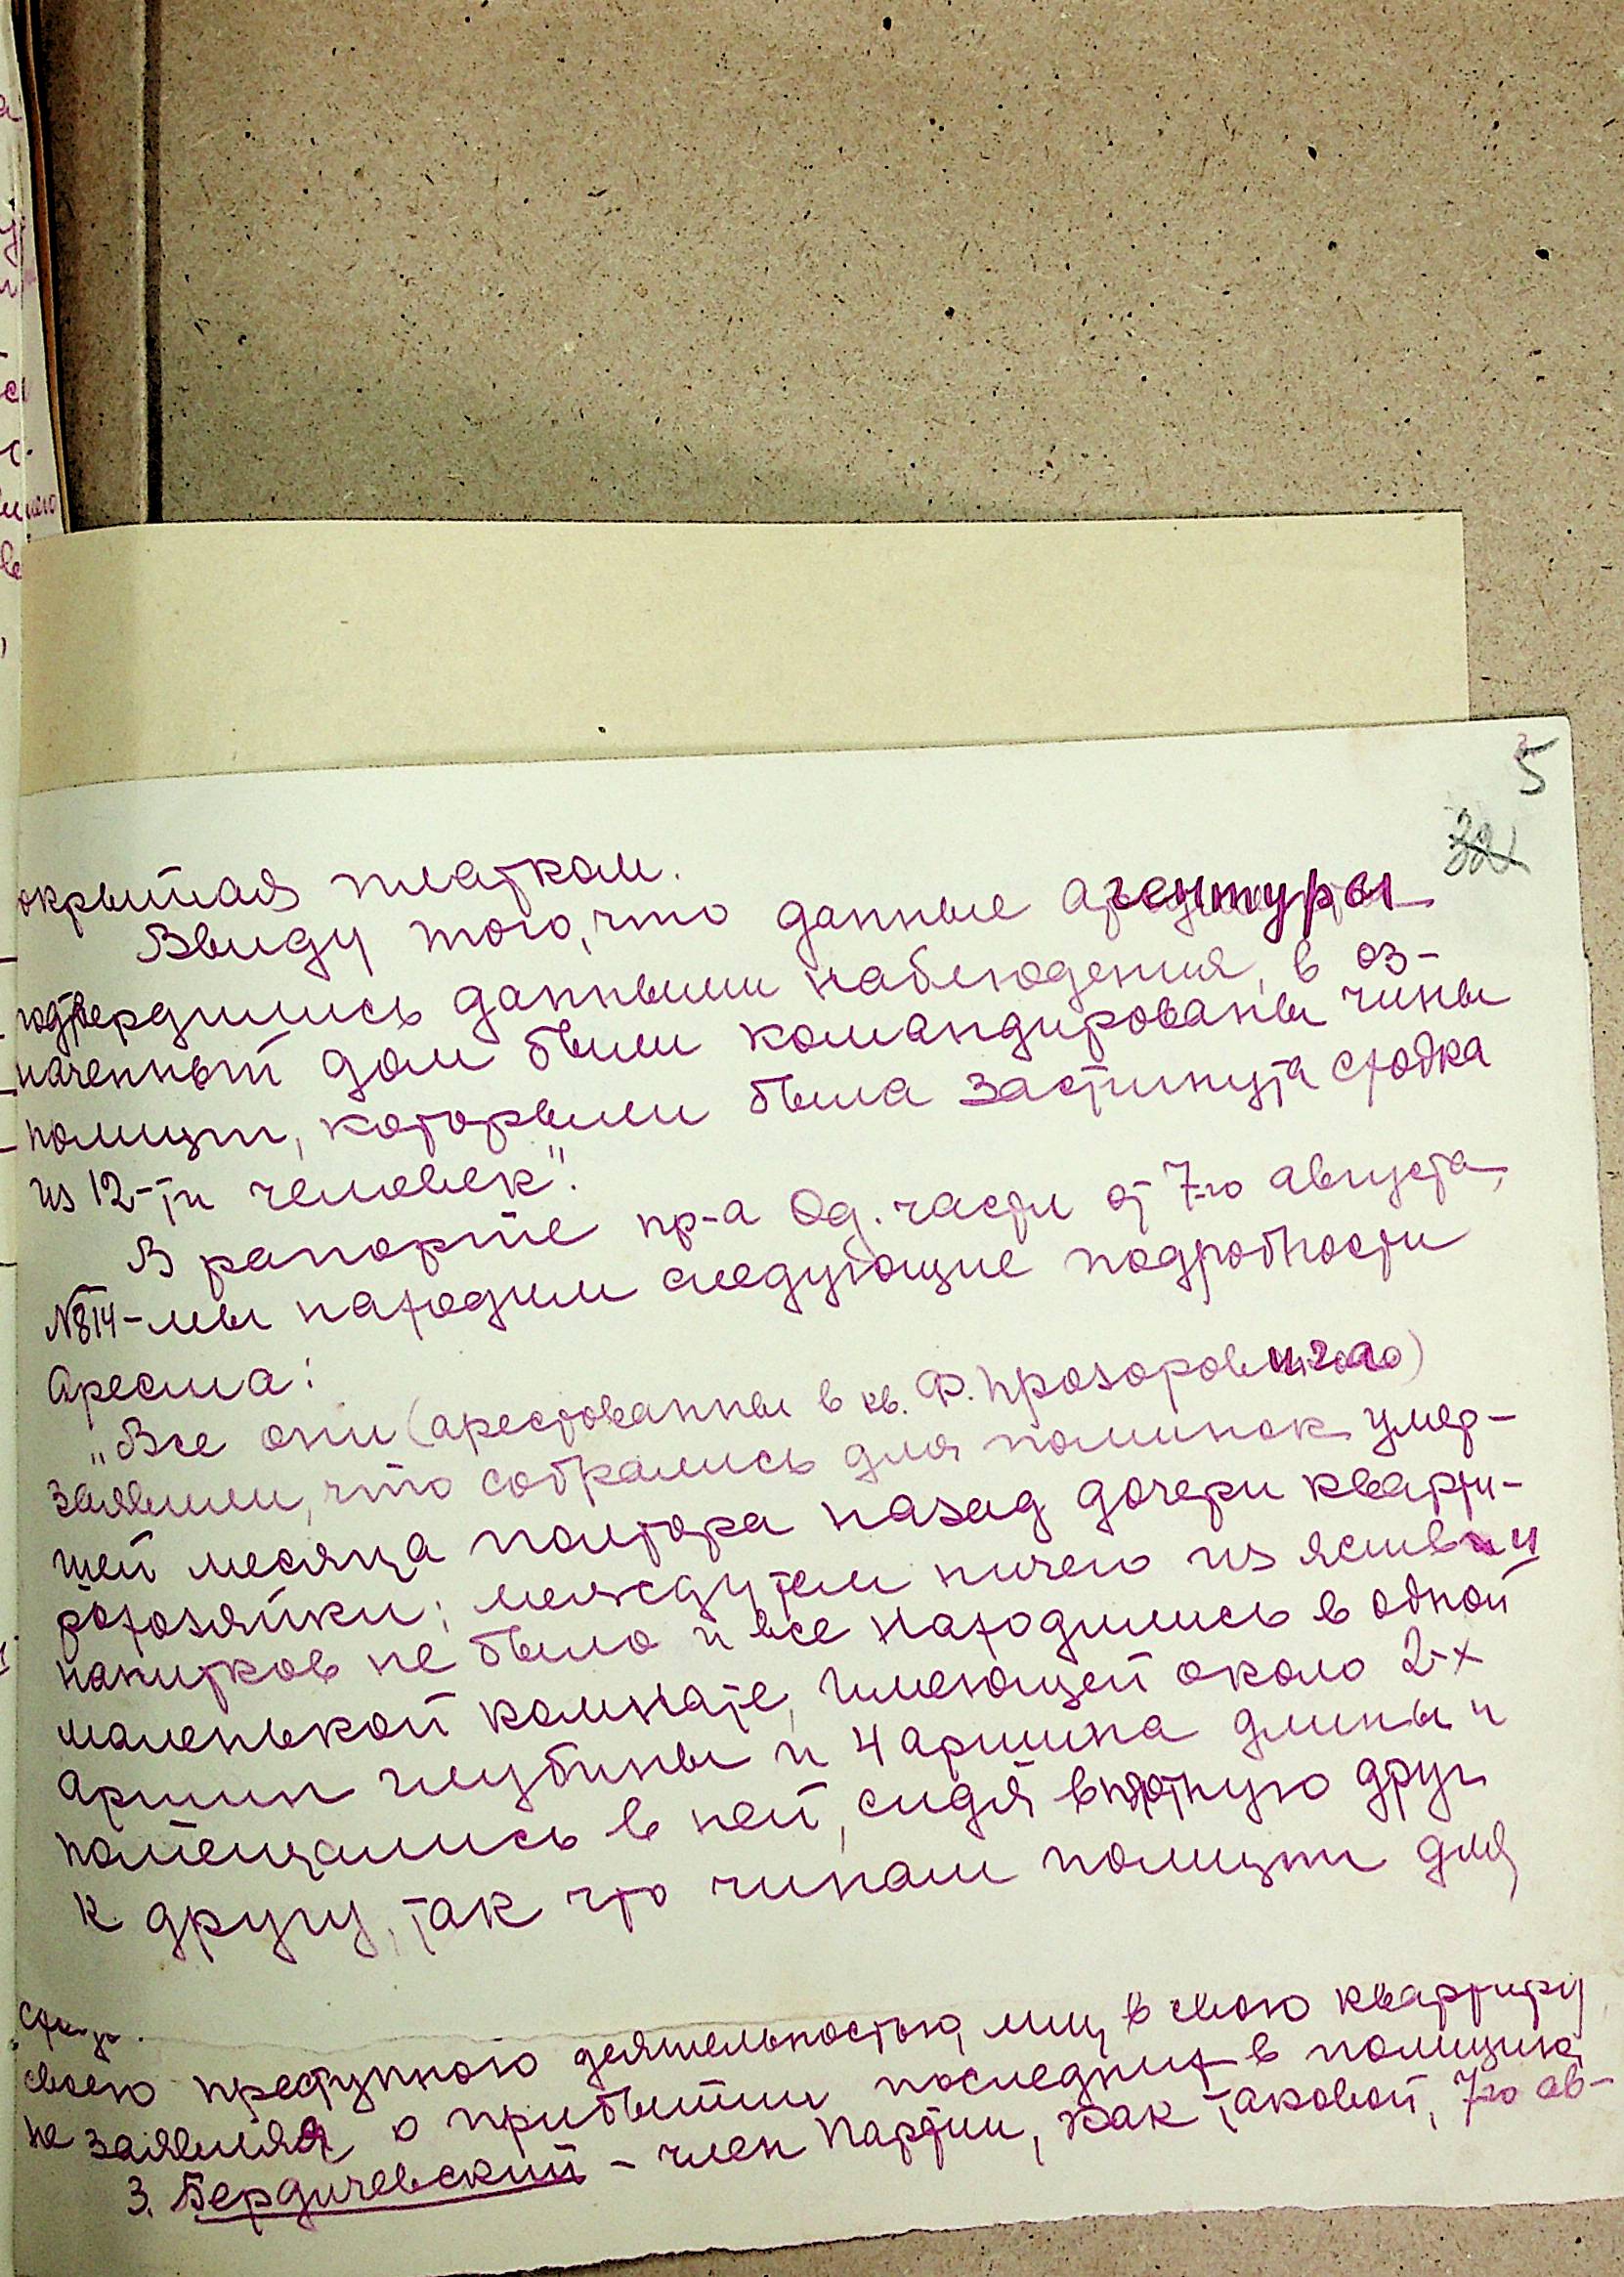 5
32
окрытая платком.
Ввиду того, что данные агентуры
подтвердились данными наблюдения, в оз-
наченный дом были командированы чины
полиции, которыми была застигнута сходка
из 12-ти человек".
В рапорте пр-а Од. части от 7-го августа,
№814 - мы находим следующие подробности
ареста:
„Все они (арестованные в кв. Ф. Прозоровского)
заявили, что собрались для поминок умер-
шей месяца полтора назад дочери кварти-
рохозяйки; между тем ничего из яств и
напитков не было и все находились в одной
маленькой комнате, имеющей около 2-х
аршин глубины и 4 аршина длины и
помещались в ней, сидя вплотную друг
к другу, так что чинам полиции для
своею преступною деятельностью, лиц, в свою квартиру
не заявляя о прибытии последних в полицию,
3. Бердичевский - член партии, как таковой, 7-го ав-